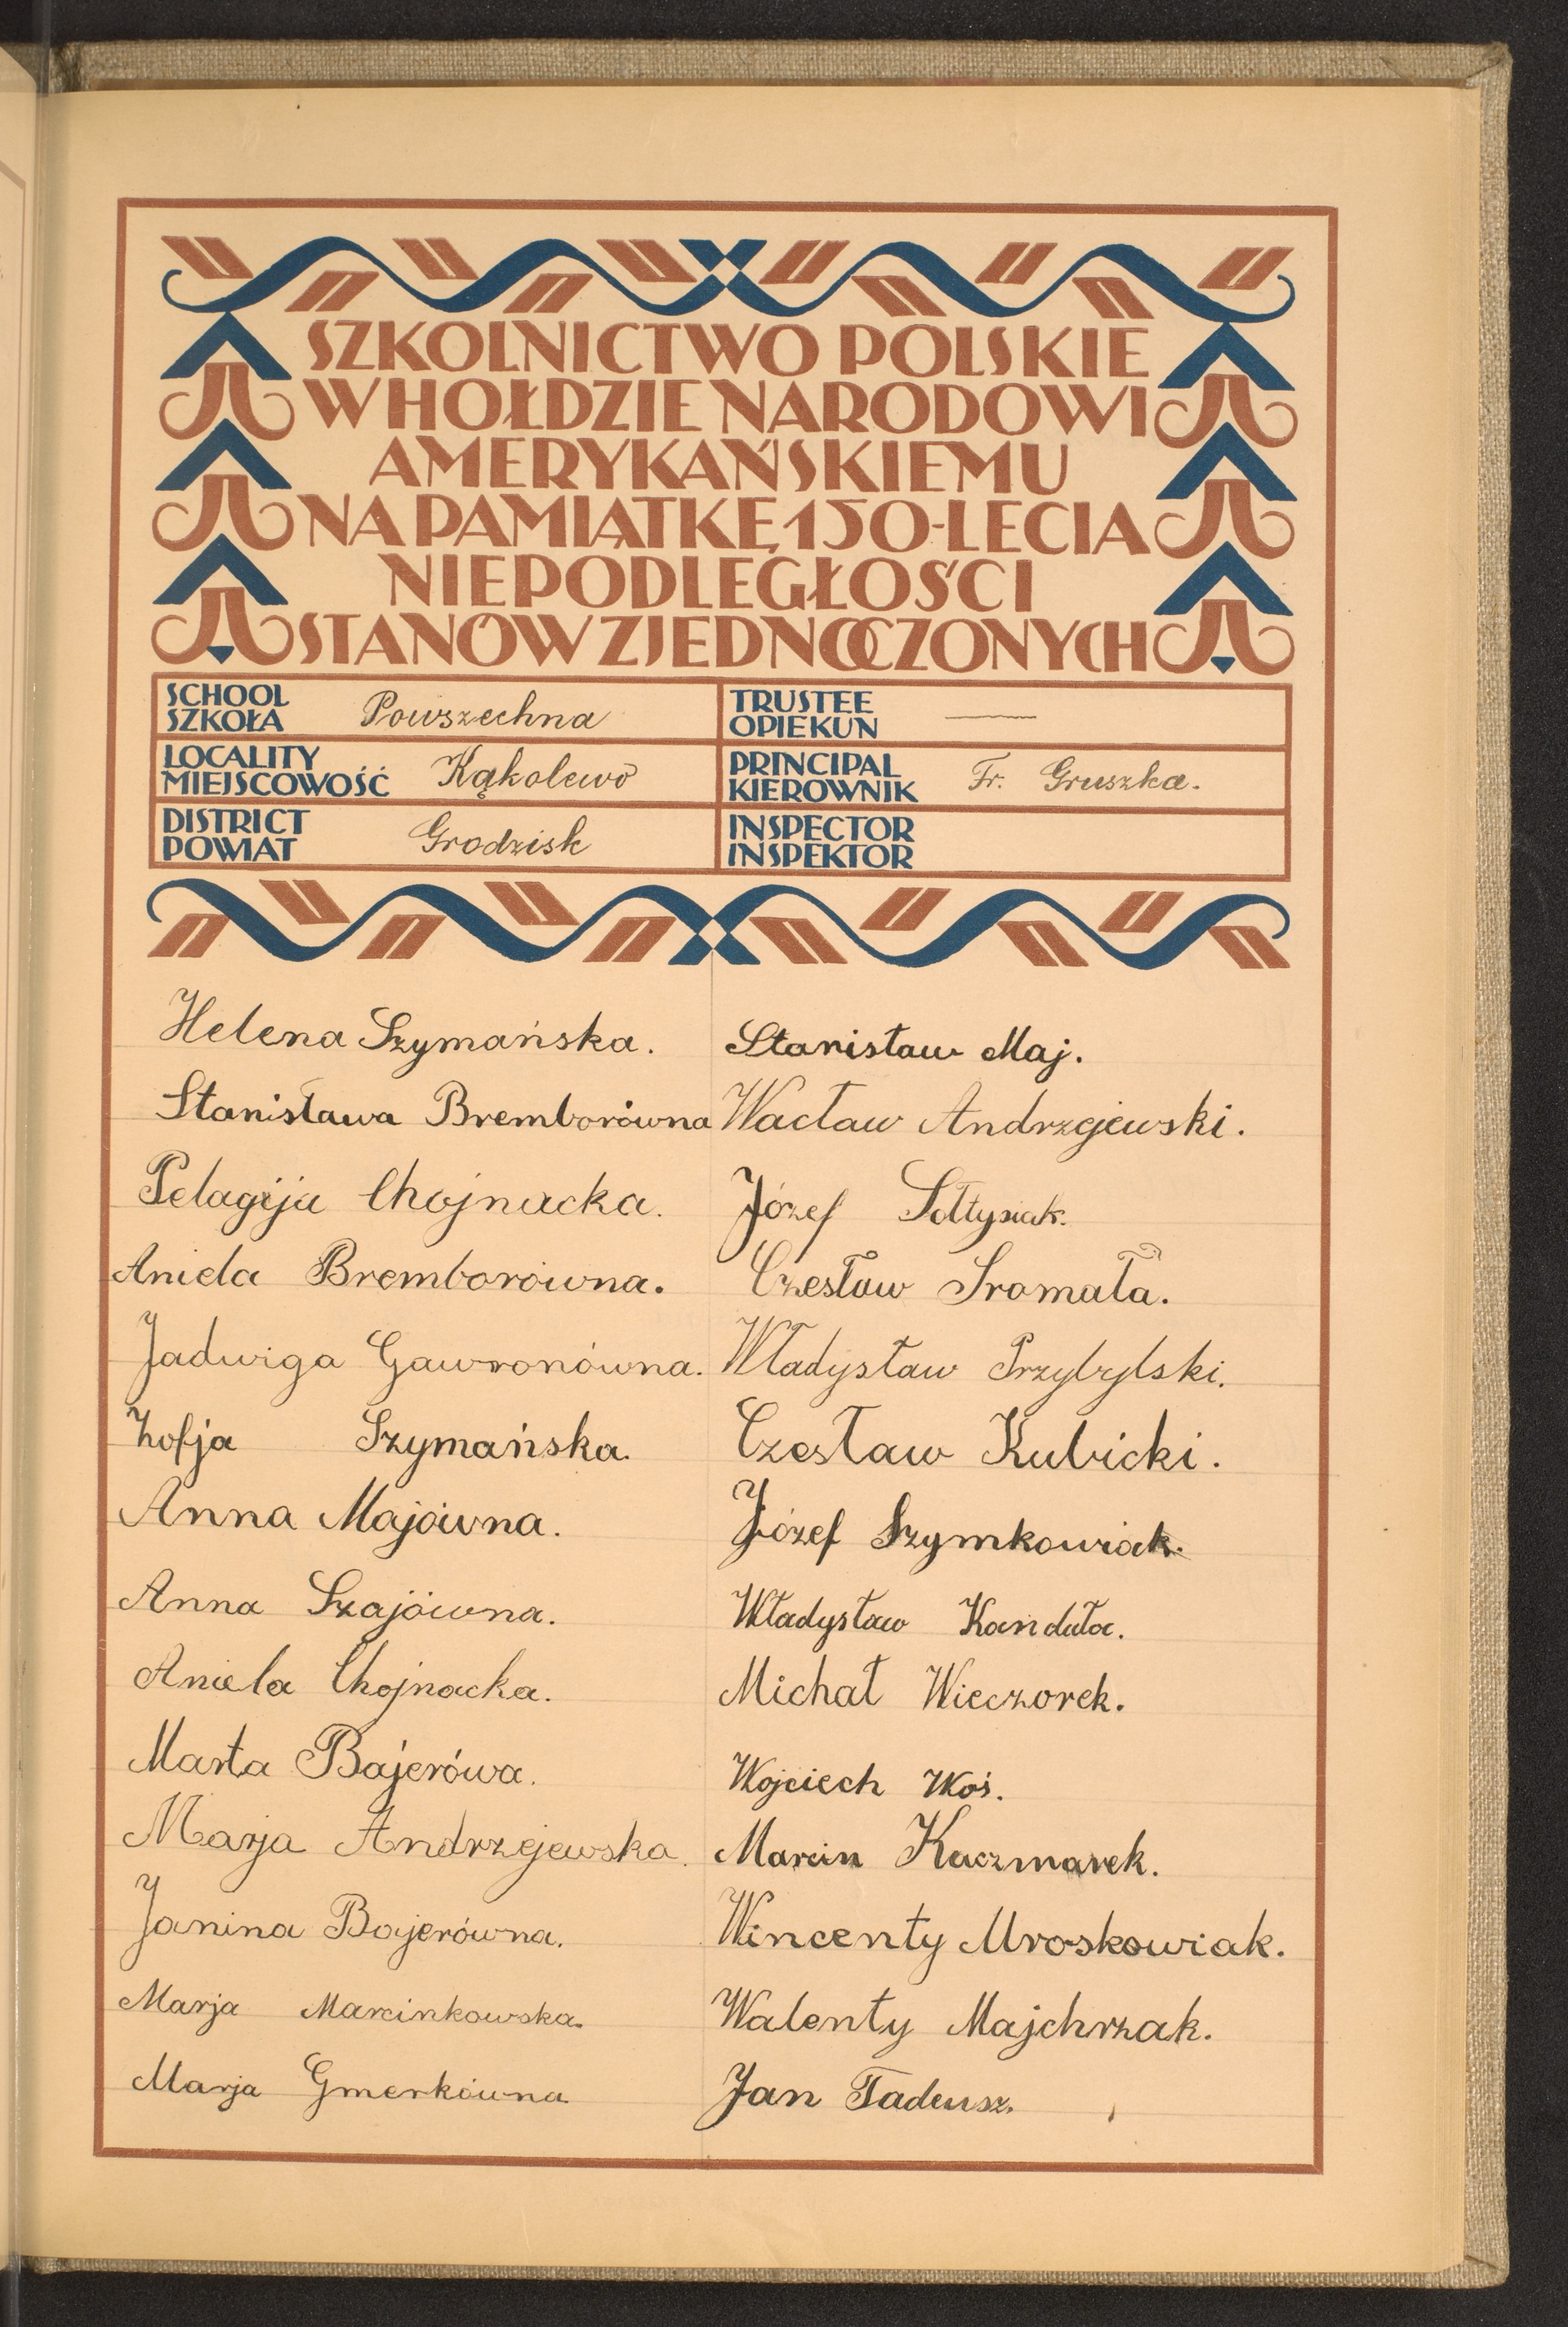 SZKOLNICTWO POLSKIE
W HOŁDZIE NARODOWI
AMERYKAŃSKIEMU
NA PAMIĄTKĘ 150-LECIA
NIEPODLEGŁOŚCI
STANÓW ZJEDNOCZONYCH
SCHOOL
SZKOŁA Powszechna
TRUSTEE
OPIEKUN —
LOCALITY
MIEJSCOWOŚĆ Kąkolewo
PRINCIPAL
KIEROWNIK Fr. Gruszka.
DISTRICT
POWIAT Grodzisk
INSPECTOR
INSPEKTOR
Helena Szymańska.
Stanisława Bremborówna
Pelagija Chojnacka.
Aniela Bremborówna.
Jadwiga Gawronówna.
Zofja Szymańska.
Anna Majówna.
Anna Szajówna.
Aniela Chojnacka.
Marta Bajerówa.
Marja Andrzejewska.
Janina Bajerówna.
Marja Marcinkowska.
Marja Gmerkówna
Stanisław Maj.
Wacław Andrzejewski.
Józef Sołtysiak.
Czesław Sromała.
Władysław Przybylski.
Czesław Kubicki.
Józef Szymkowiak.
Władysław Kanduła.
Michał Wieczorek.
Wojciech Woś.
Marcin Kaczmarek.
Wincenty Mroskowiak.
Walenty Majchrzak.
Jan Tadeusz.